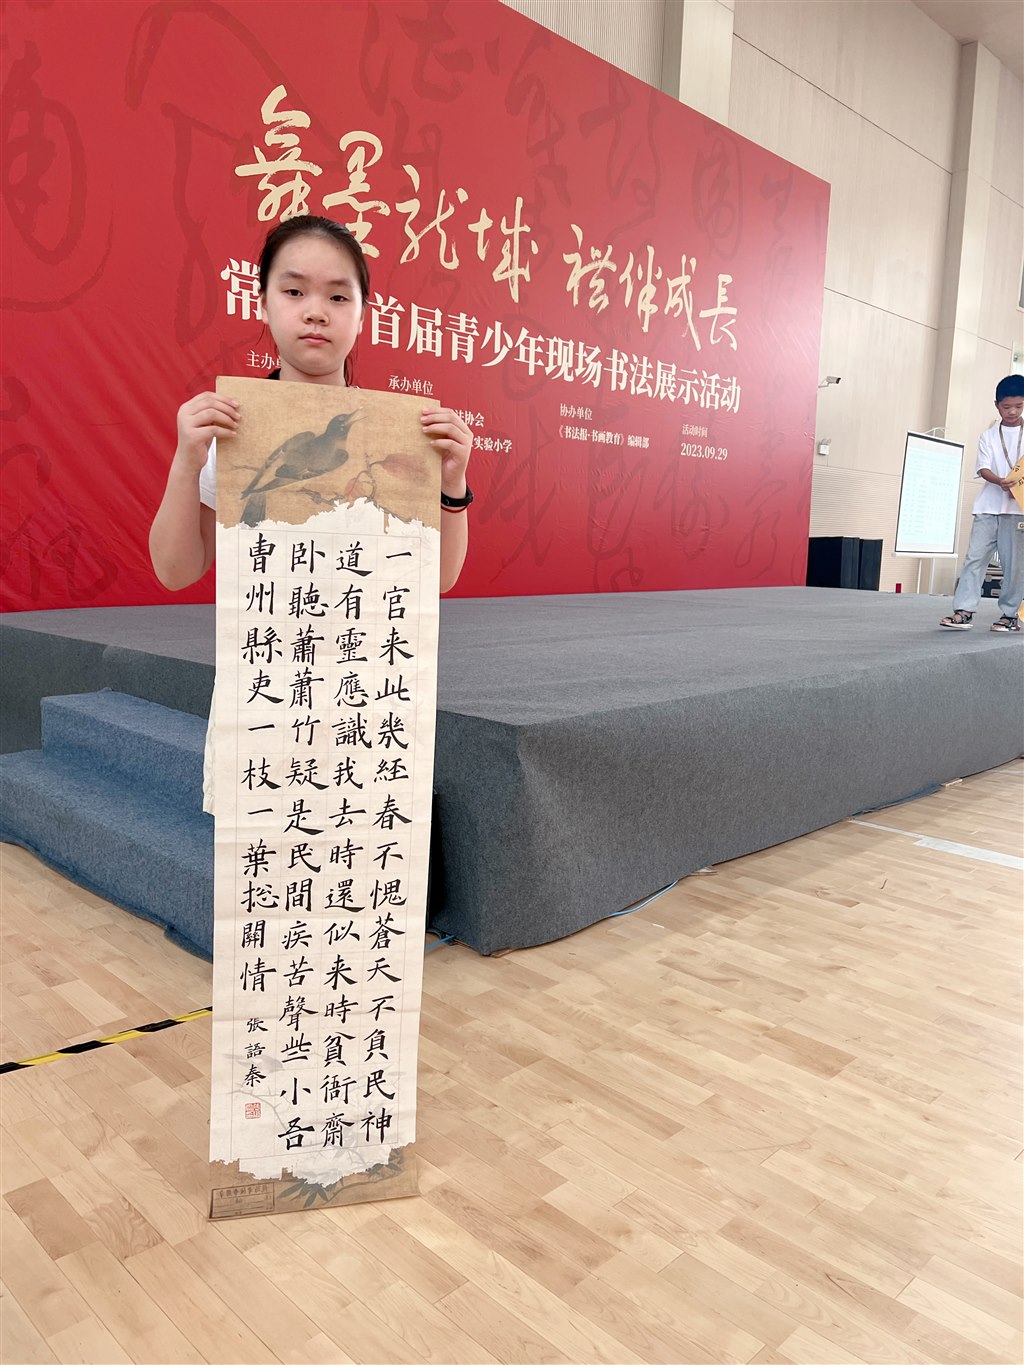 舞墨龍城 禮伴成長
常 首届青少年现场书法展示活动
主办单
承办单位
法协会
实验小学
协办单位
《书法报·书画教育》编辑部
活动时间
2023.09.29
一官来此幾経春不愧蒼天不負民神
道有靈應識我去時還似来時貧衙齋
卧聽蕭蕭竹疑是民間疾苦聲些小吾
曹州縣吏一枝一葉総關情
張語秦